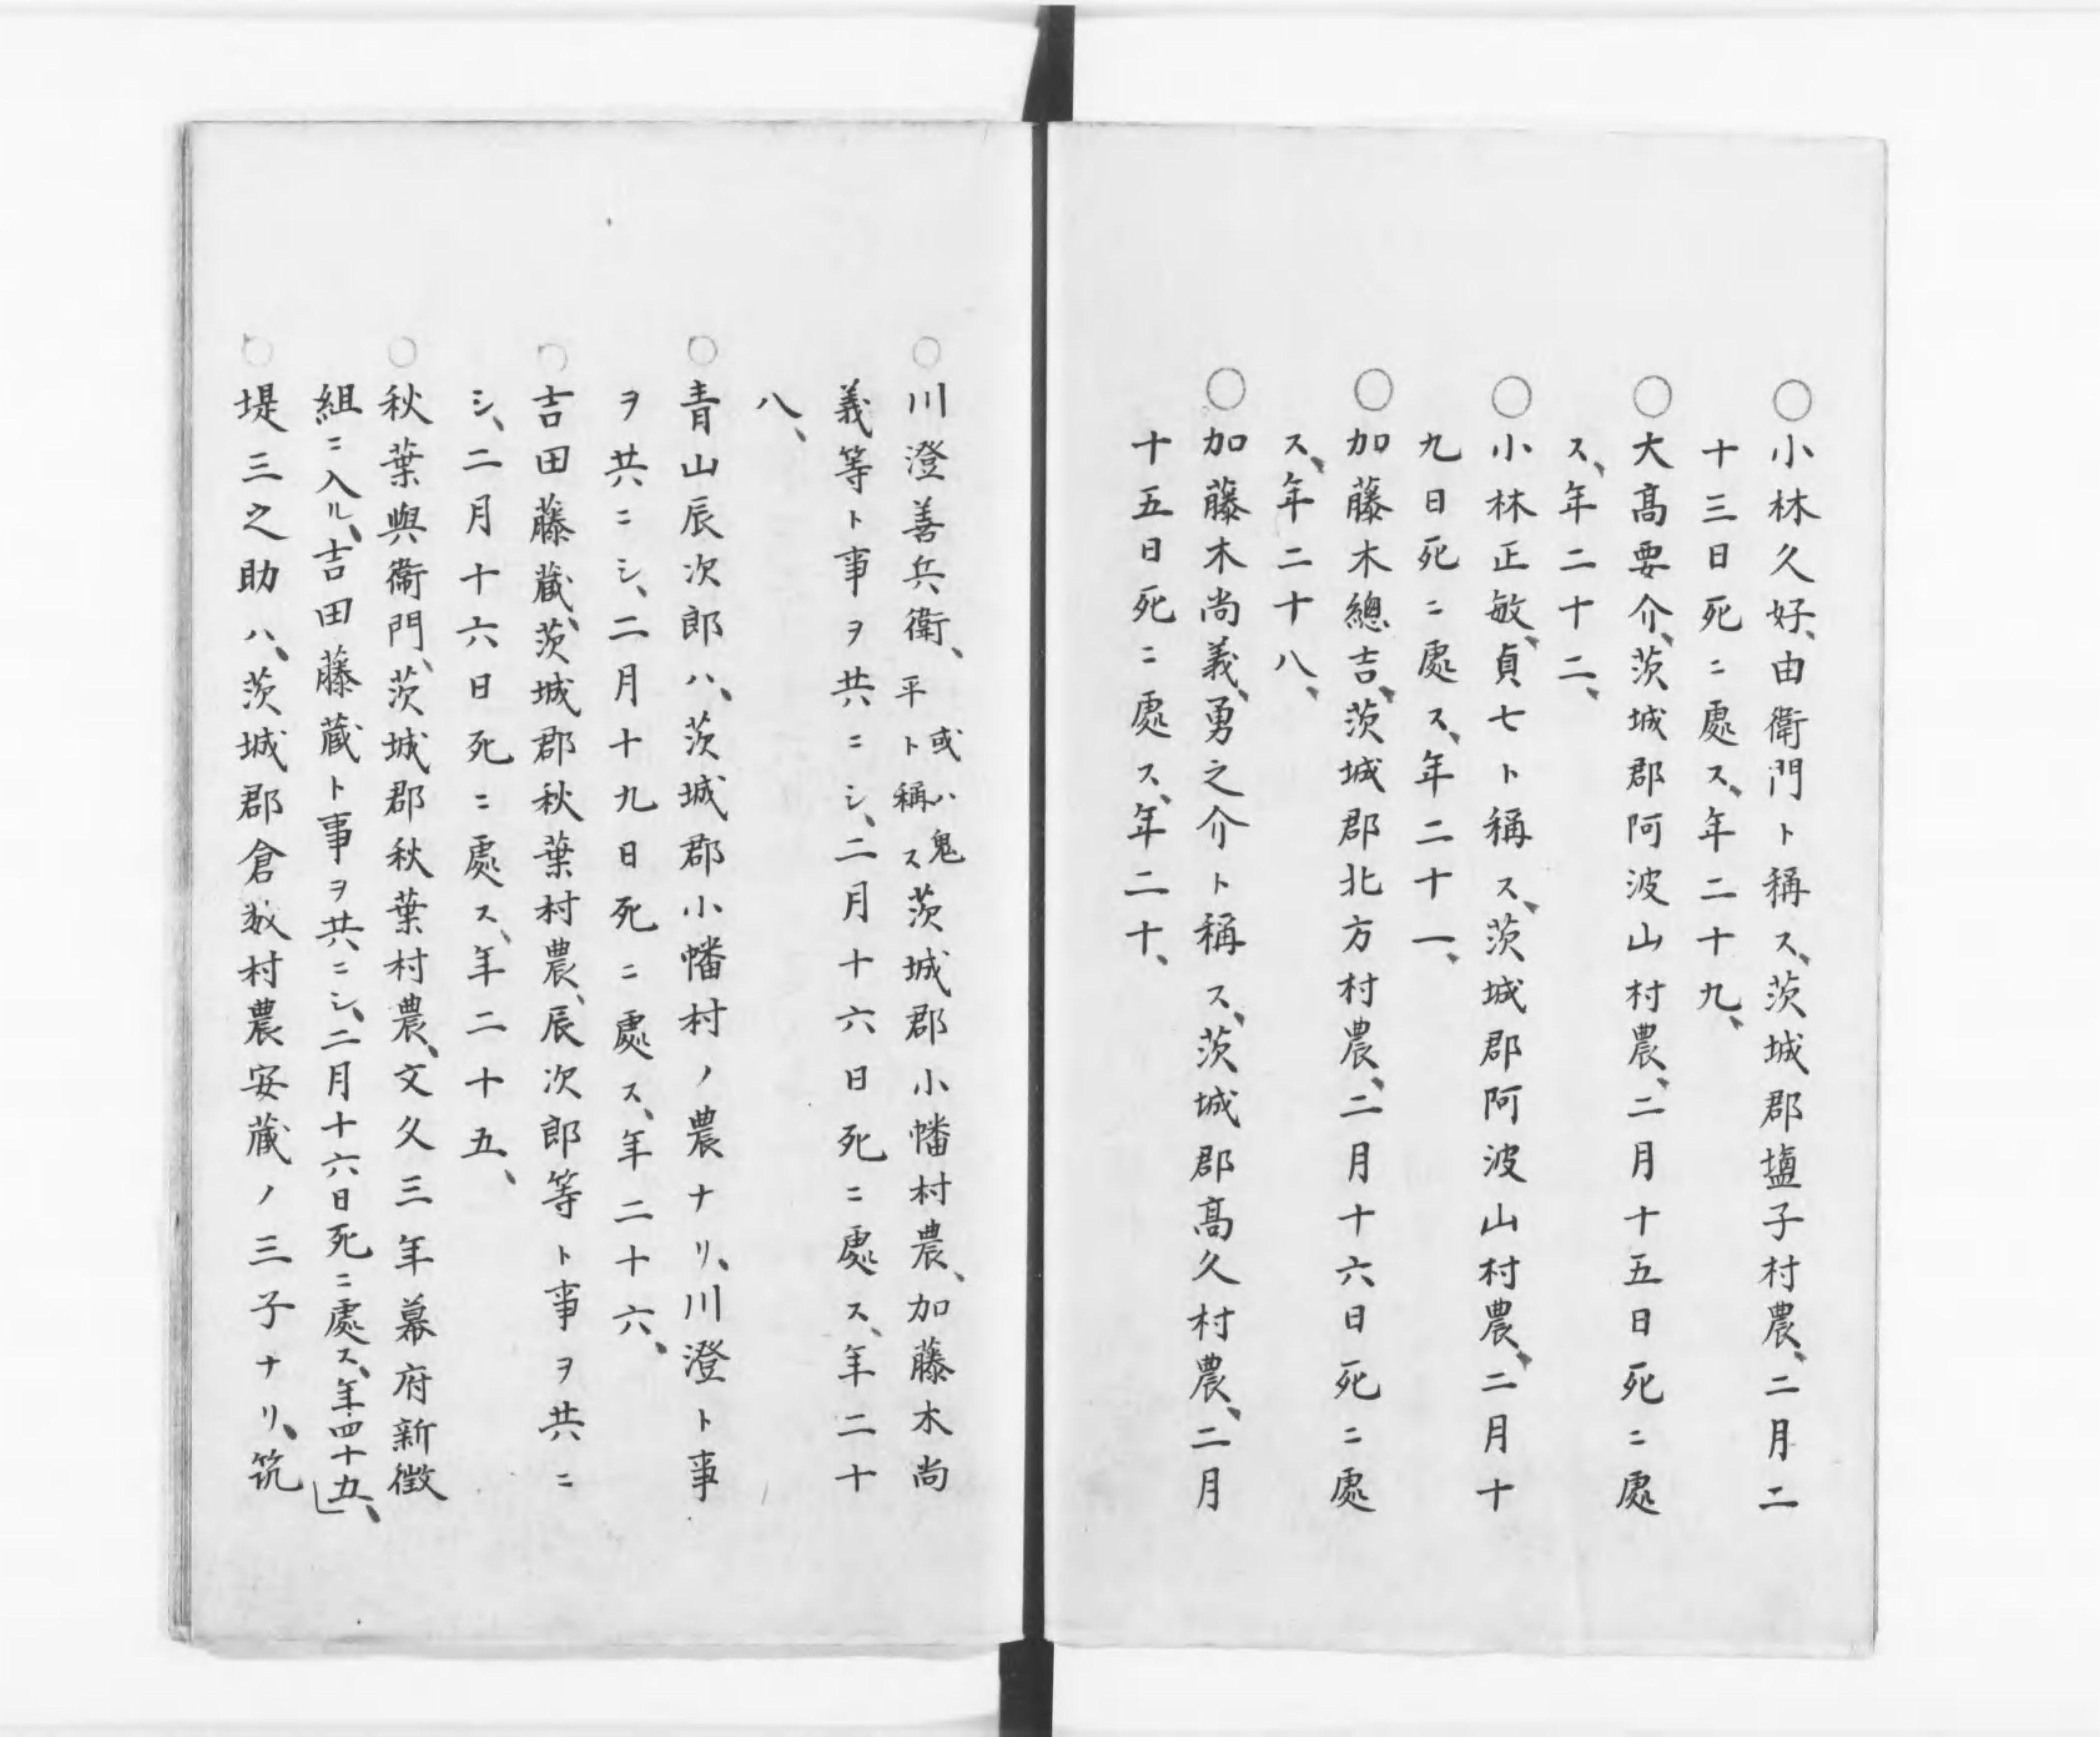 ○小林久好、由衛門ト稱ス、茨城郡塩子村農、二月二
十三日死ニ處ス、年二十九、
○大髙要介、茨城郡阿波山村農、二月十五日死ニ處
ス、年二十二、
○小林正敏、貞七ト稱ス、茨城郡阿波山村農、二月十
九日死ニ處ス、年二十一、
○加藤木總吉、茨城郡北方村農、二月十六日死ニ處
ス、年二十八、
○加藤木尚義、勇之介ト稱ス、茨城郡髙久村農、二月
十五日死ニ處ス、年二十、
○川澄善兵衛、或ハ鬼平ト稱ス茨城郡小幡村農、加藤木尚
義等ト事ヲ共ニシ、二月十六日死ニ處ス、年二十
八、
○青山辰次郎ハ、茨城郡小幡村ノ農ナリ、川澄ト事
ヲ共ニシ、二月十九日死ニ處ス、年二十六、
○吉田藤蔵、茨城郡秋葉村農、辰次郎等ト事ヲ共ニ
シ、二月十六日死ニ處ス、年二十五、
○秋葉與衛門、茨城郡秋葉村農、文久三年幕府新徴
組ニ入ル、吉田藤蔵ト事ヲ共ニシ、二月十六日死ニ處ス、年四十五、」
○堤三之助ハ、茨城郡倉数村農安蔵ノ三子ナリ、筑